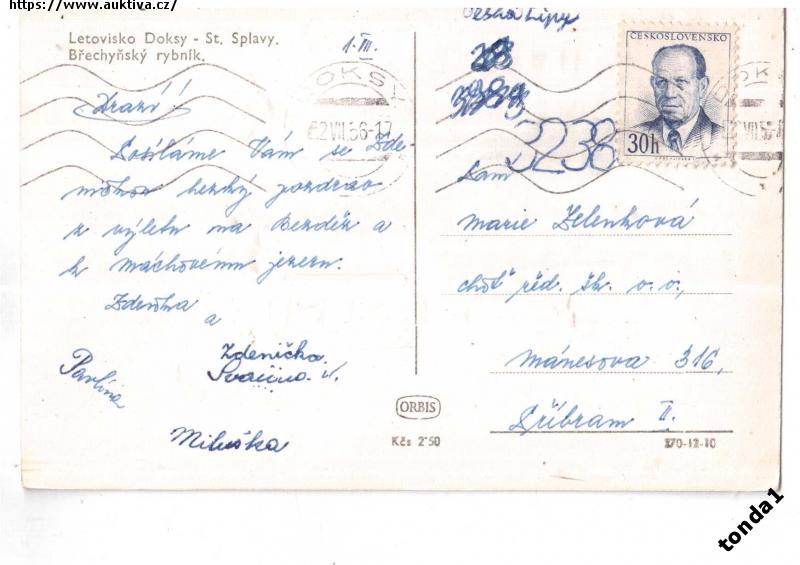 https://www.auktiva.cz/
Letovisko Doksy - St. Splavy.
Břechyňský rybník.
1. III.
Česká Lípy
3238
ČESKOSLOVENSKO
30h
DOKSY
22.VII.56-17
Drazí!
Posíláme Vám se Zde-
ničkou hezký pozdrav
z výletu na Bezděz a
k máchovému jezeru.
Zdenka
a
Zdenička
Pavlína
Miluška
Paní
Marie Zelenková
choť řed. Šk. v. v.,
Mánesova 316,
Příbram II.
ORBIS
Kčs 2'50
270-12-10
tonda1